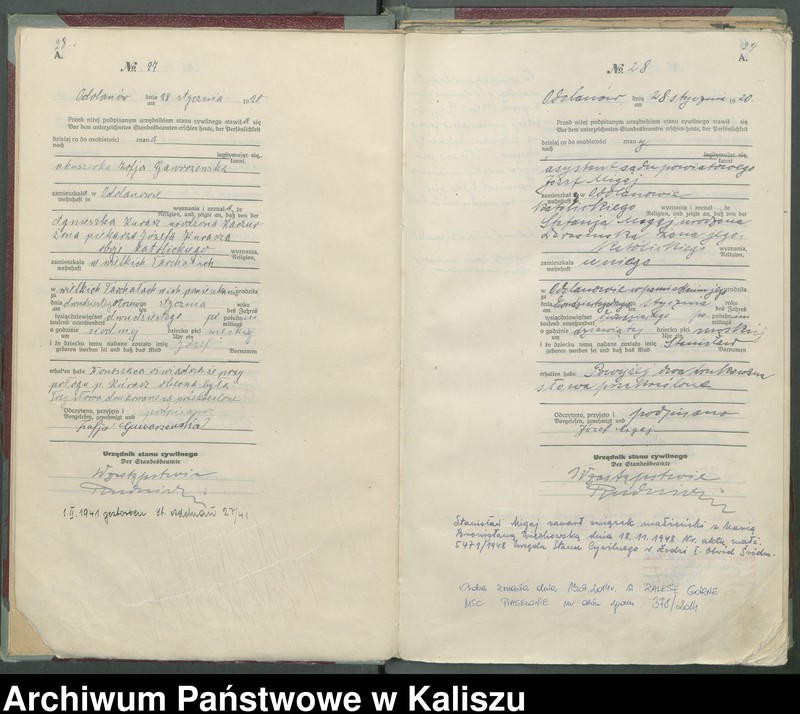 28.
A.
No. 27
Odolanów dnia 28 stycznia 1920
am
Przed niżej podpisanym urzędnikiem stanu cywilnego stawiła się
Vor dem unterzeichneten Standesbeamten erschien heute, der Persönlichkeit
dzisiaj co do osobistości znana
nach
legitymując się
kannt
akuszerka Zofja Gaworzewska
zamieszkała w Odolanowie
wohnhaft in
wyznania i zeznał, że
Religion, und zeigte an, daß von der
Agnieszka Kurasz urodzona
żona piekarza Józefa Kurasza
katolickiego wyznania,
Religion,
zamieszkała w wielkich Tarchałach
wohnhaft
w wielkich Tarchałach w ich porodziła
zu
dnia stycznia roku
am ten des Jahres
tysiącdziewięćset dwudziestego po południu
tausend neunhundert mittags
o godzinie siódmej dziecko płci męskiej
um Uhr ein
i że dziecku temu nadane zostało imię Józef
geboren worden sei und daß das Kind Vornamen
erhalten habe
połogu p. Kurasz obecna była
Trzy słowa drukowane przekreślone
Odczytano, przyjęto i podpisano
Vorgelesen, genehmigt und
Zofja Gaworzewska
Urzędnik stanu cywilnego
Der Standesbeamte
W zastępstwie
1.II.1941 gestorben St. Adelnau 27/41
29
A.
No. 28
Odolanów, dnia 28 stycznia 1920.
am
Przed niżej podpisanym urzędnikiem stanu cywilnego stawił się
Vor dem unterzeichneten Standesbeamten erschien heute, der Persönlichkeit
dzisiaj co do osobistości znany
nach
legitymując się
kannt
asystent sądu powiatowego
Józef Migaj
zamieszkały w Odolanowie
wohnhaft in
katolickiego wyznania i zeznał, że
Religion, und zeigte an, daß von der
Stefanja Migaj urodzona
żona jego
katolickiego wyznania,
Religion,
zamieszkała u niego
wohnhaft
w Odolanowie w pomieszkaniu jego porodziła
zu
dnia stycznia roku
am ten des Jahres
tysiącdziewięćset dwudziestego po południu
tausend neunhundert mittags
o godzinie dziewiątej dziecko płci męskiej
um Uhr ein
i że dziecku temu nadane zostało imię Stanisław
geboren worden sei und daß das Kind Vornamen
erhalten habe Powyżej dwa drukowane
słowa przekreślone
Odczytano, przyjęto i podpisano
Vorgelesen, genehmigt und
Józef Migaj
Urzędnik stanu cywilnego
Der Standesbeamte
W zastępstwie
Stanisław Migaj zawarł związek małżeński z Marią
Bronisławą dnia 18.11.1948 Nr. aktu małż.
5471/1948 Urzędu Stanu Cywilnego w Łodzi I. Obwód Śródm.
Osoba zmarła dnia 2014r. w ZALESIE GÓRNE
USC PIASECZNO nr aktu zgonu 378/2014
Archiwum Państwowe w Kaliszu